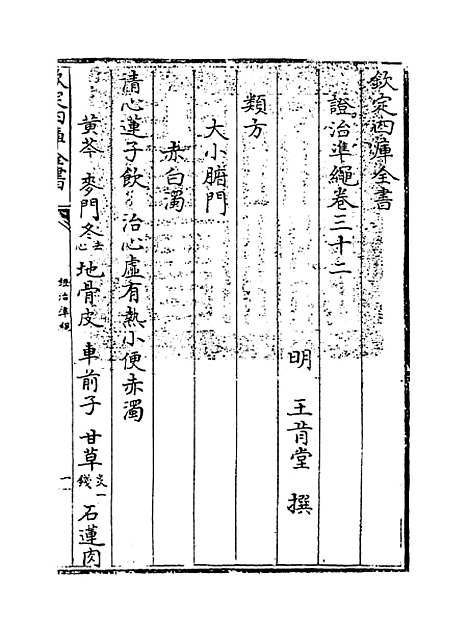 欽定四庫全書
證治準繩卷三十二
明 王肯堂 撰
類方
大小腑門
赤白濁
清心蓮子飲 治心虛有熱小便赤濁
黃芩 麥門冬去心 地骨皮 車前子 甘草炙一錢 石蓮肉
欽定四庫全書
證治準繩
一